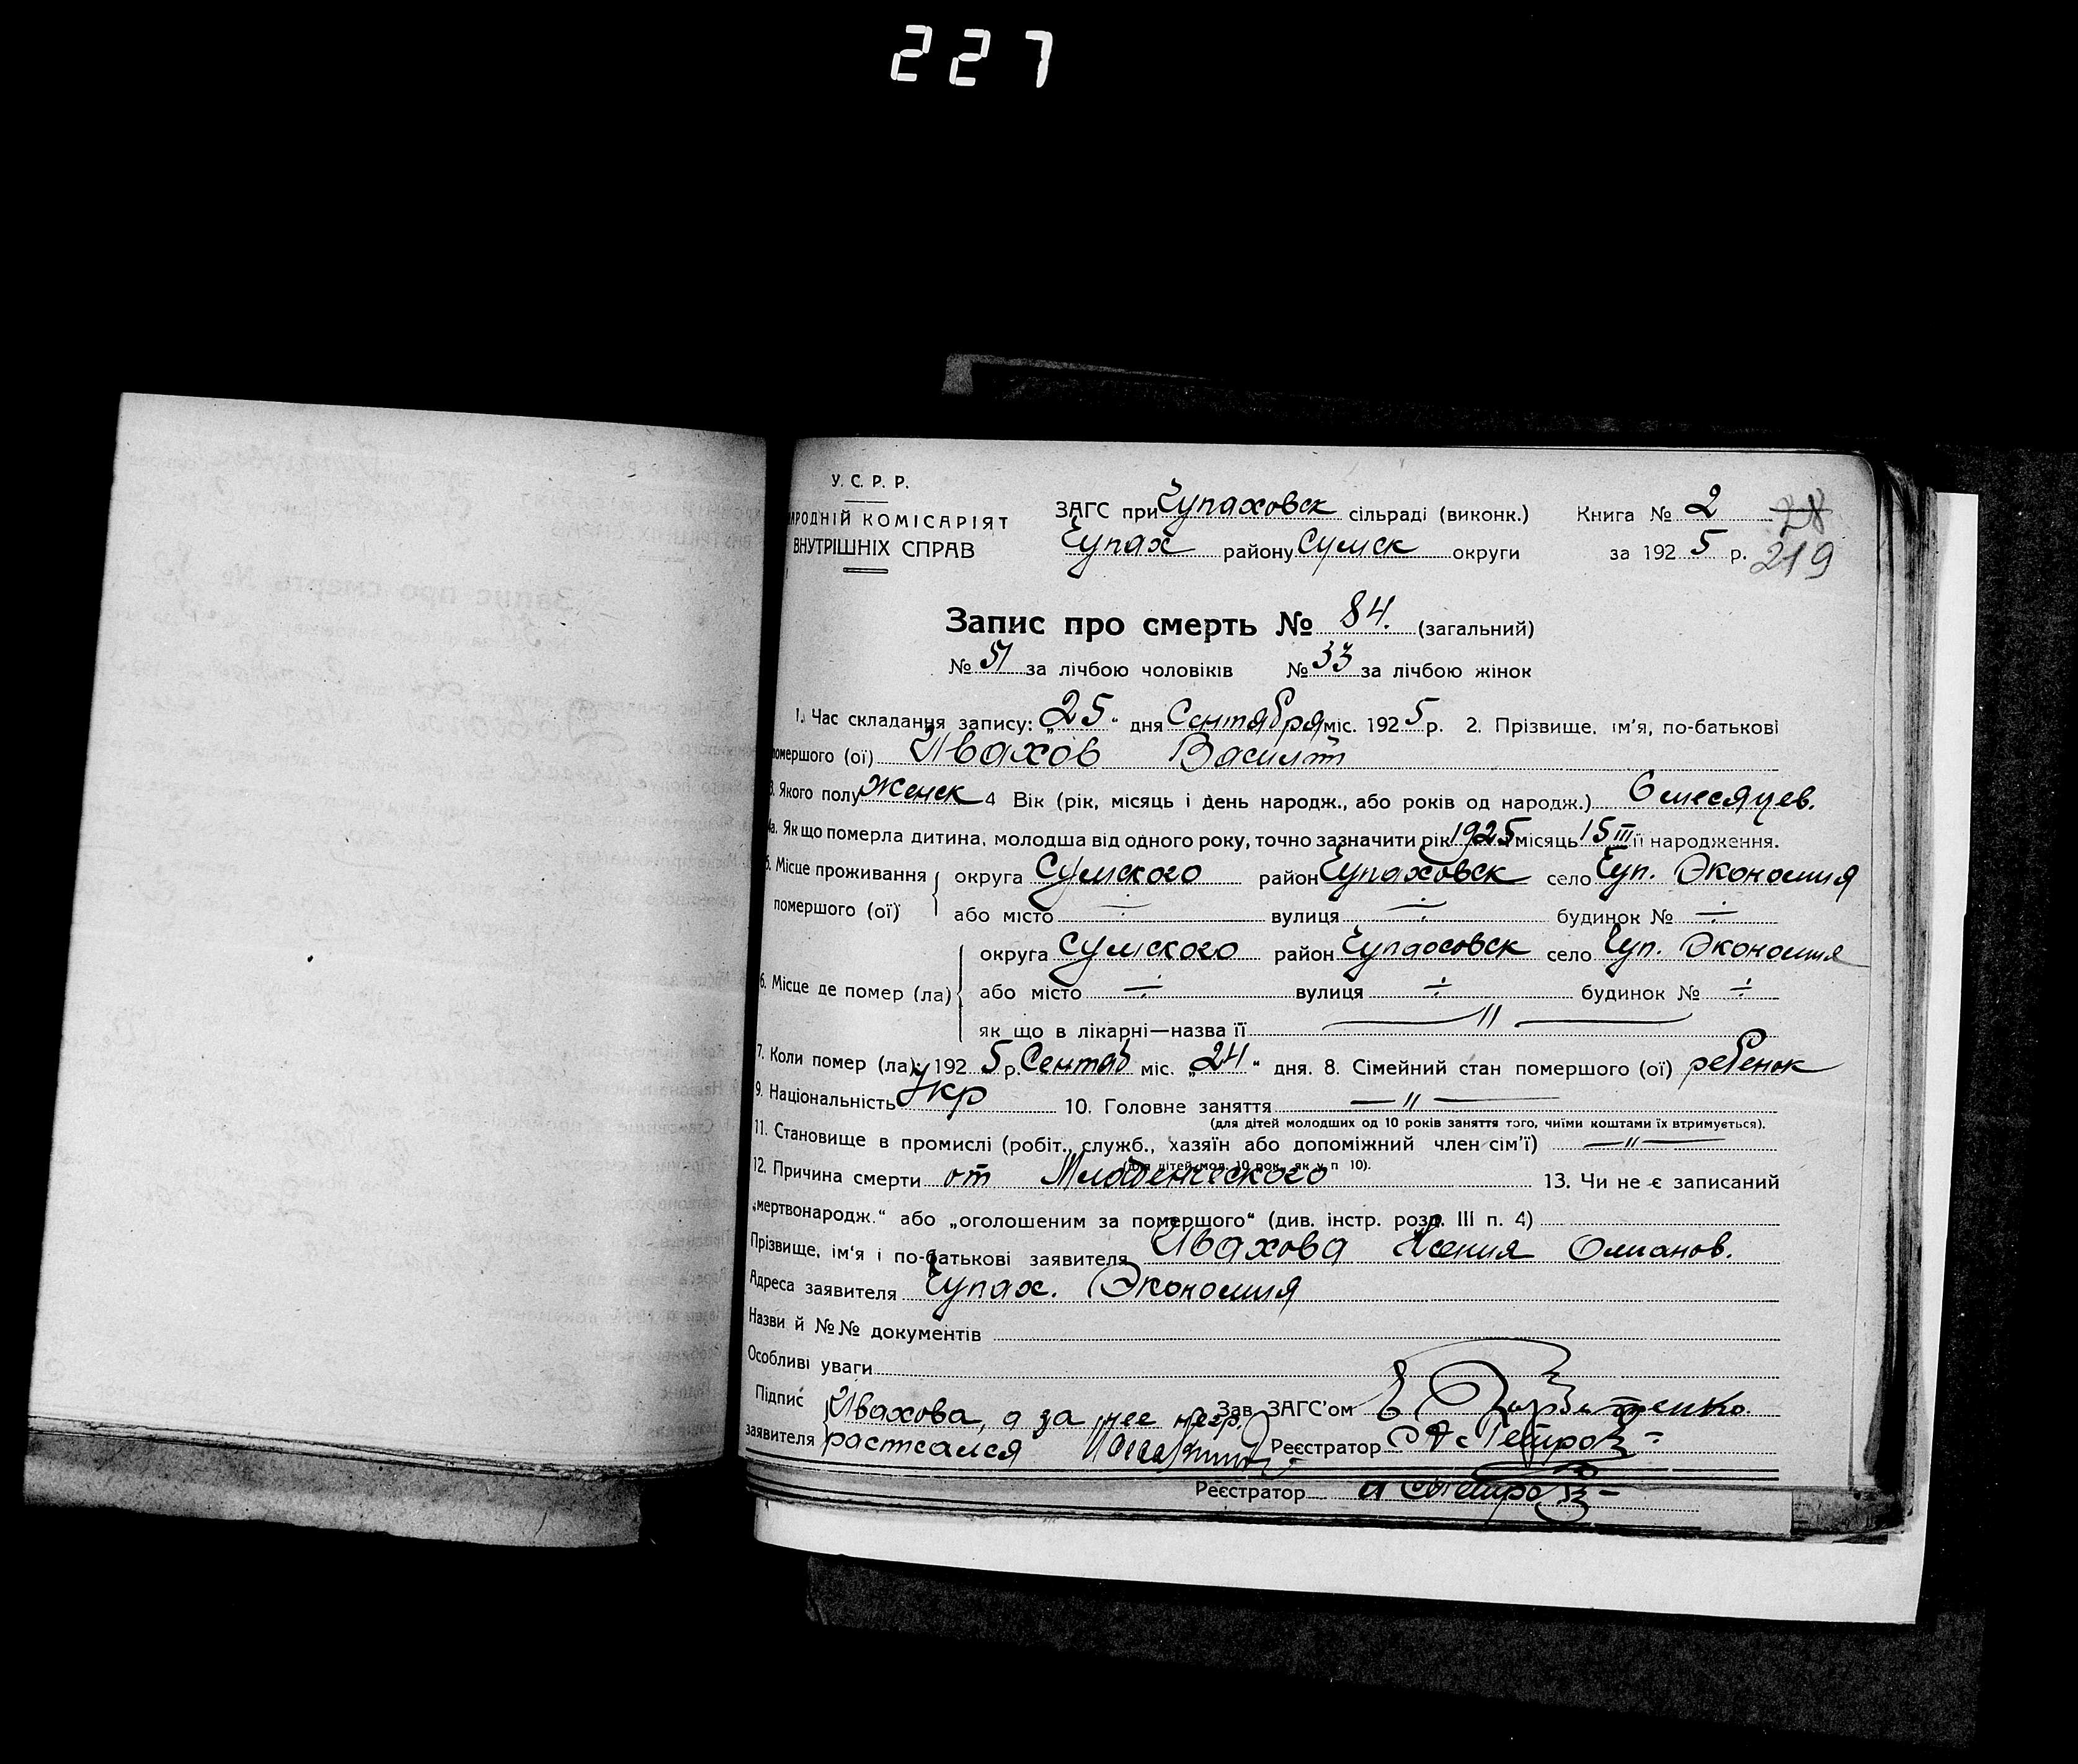 227
У. С. Р. Р.
НАРОДНІЙ КОМІСАРІЯТ
ВНУТРІШНІХ СПРАВ
ЗАГС при Чупаховск сільраді (виконк.) Книга № 2 28
Чупах району Сумск округи за 1925 р. 219
Запис про смерть № 84. (загальний)
№ 51 за лічбою чоловіків № 33 за лічбою жінок
1. Час складання запису: „25“ дня Сентября міс. 1925 р. 2. Прізвище, ім'я, по-батькові
помершого (ої) Ивахов
3. Якого полу Женск 4 Вік (рік, місяць і день народж., або років од народж.) 6 месяцев.
4а. Як що померла дитина, молодша від одного року, точно зазначити рік 1925 місяць 15 III її народження.
5. Місце проживання округа Сумского район Чупаховск село Чуп. Экономия
помершого (ої) або місто ÷ вулиця ÷ будинок № ÷
округа Сумского район Чупаховск село Чуп. Экономия
6. Місце де помер (ла) або місто ÷ вулиця ÷ будинок № ÷
як що в лікарні—назва її — 〃 —
7. Коли помер (ла): 1925 р. Сентяб міс. „24“ дня. 8. Сімейний стан помершого (ої) ребенок
9. Національність Укр 10. Головне заняття — 〃 —
(для дітей молодших од 10 років заняття того, чиїми коштами їх втримується).
11. Становище в промислі (робіт., служб., хазяїн або допоміжний член сім'ї) — 〃 —
(для дітей мол. 10 рок., як у п 10).
12. Причина смерти от Младенческого 13. Чи не є записаний
„мертвонародж.“ або „оголошеним за помершого“ (див. інстр. розд. III п. 4)
Прізвище, ім'я і по-батькові заявителя Ивахова Ксения
Адреса заявителя Чупах. Экономия
Назви й №№ документів
Особливі уваги
Підпис Ивахова, а за нее негр. Зав. ЗАГС'ом
заявителя Реєстратор
Реєстратор